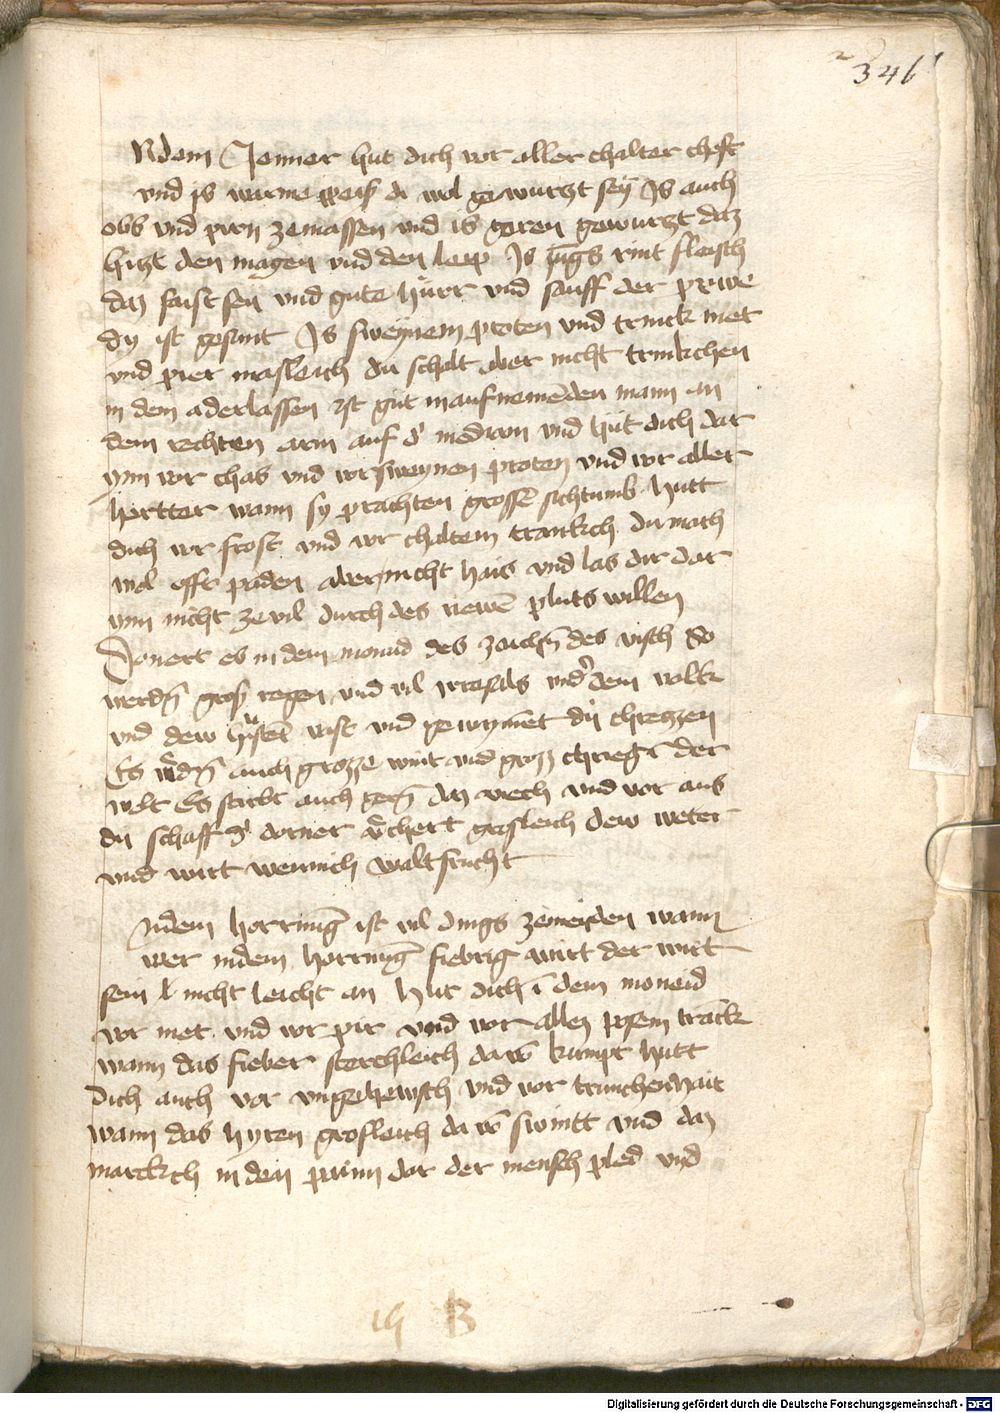 346
Ndem Jenner hut dich vor aller chalter chost
vnd ys warme speis di wol gewurtzt sey Is auch
obs vnd pirn zemassen vnd is geren gewurtzt daz
hitzt den magen vnd den leip Is jūgs rint fleisch
daz faist sey vnd gute hùrr vnd sauff der prwe
dy ist gesunt Is sweynem proten vnd trinck met
vnd pier masleich du scholt aber nicht trinkchen
in dem aderlassen Ist gut in aufnemēden mann an
dem rechten arm auf d' medion vnd hùt dich dar
ynn vor chas vnd vor sweynen proten vnd vor aller
hertter wann sy prachten grossē sichtumb hutt
dich vor frost vnd vor chaltem tranckch du mach
wol offt paden aber nicht hais vnd las dir dar
ynn nicht ze vil durch des newē pluts willen
Donert es in dem monad des zaichn̄ des visch So
werdn̄ gros regen vnd vil vnder dem volk
vnd dew hůstē vast vnd gewynnet dy chretzen
Es wdn̄ auch grozze wint vnd groz chrieg ī der
welt Es stirbt auch gern̄ daz viech vnd vor aus
dy schaff d' dorner v̄chert grosleich dew weter
vnd wirt wennich waltfrucht
Indem horrnūg ist vil dings zemeiden wann
wer indem horrnūg fiebrig wirt der wirt
sein l nicht leicht an Hut dich ī dem moneid
vor met vnd vor pir vnd vor allen posem trāck
wann das fieber sterchleich da vō kumpt hutt
dich auch vor vngechewsch vnd vor trunchenhait
wann das hyren grosleich da vō swintt vnd daz
marckch in den painn dar der mensch plod vnd
Digitalisierung gefördert durch die Deutsche Forschungsgemeinschaft - DFG